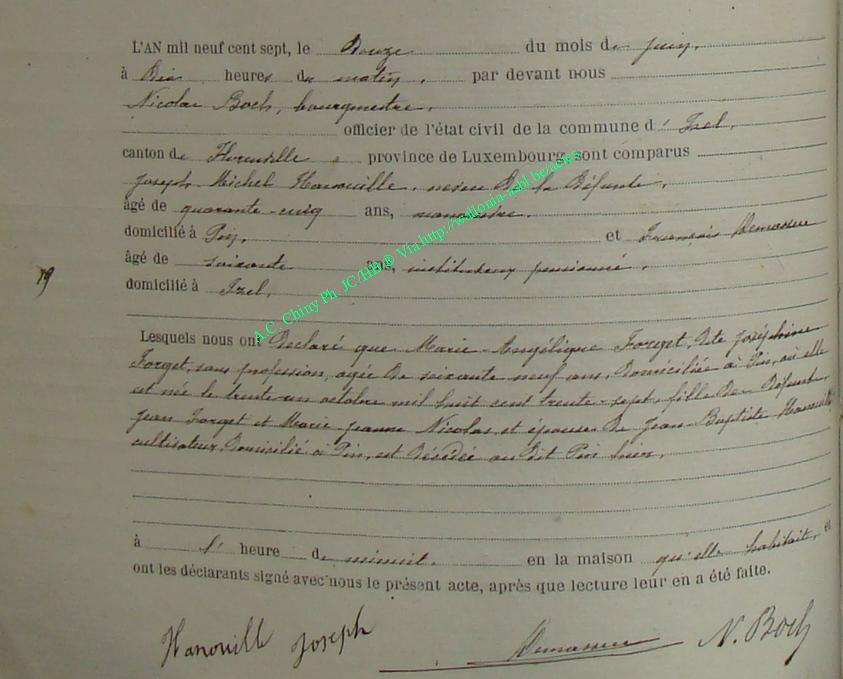 L'AN mil neuf cent sept, le Douze du mois de juin,
à Dix heures du matin, par devant nous
Nicolas Boch, bourgmestre,
officier de l'état civil de la commune d'Izel,
canton de Florenville, province de Luxembourg, sont comparus
Joseph Michel Hanouille, neveu De la Défunte,
âgé de quarante-cinq ans, manœuvre,
domicilié à Pin, et François Demasseu
âgé de soixante ans, instituteur pensionné,
19
domicilié à Izel,
Lesquels nous ont Déclaré que Marie-Angélique Forget, Dite Joséphine
Forget, sans profession, agée De soixante neuf ans, Domiciliée à Pin, où elle
est née le trente-un octobre mil huit cent trente-sept, fille De Défunts,
Jean Forget et Marie Jeanne Nicolas et épouse De Jean-Baptiste
cultivateur, Domicilié à Pin, est Décédée au Dit Pin hier,
à l' heure de minuit. en la maison qu'elle habitait, et
ont les déclarants signé avec nous le présent acte, après que lecture leur en a été faite.
Hanouille Joseph N. Boch
A.C. Chiny Ph. JC/HB ® Via http://wallonia-asbl.be/actes